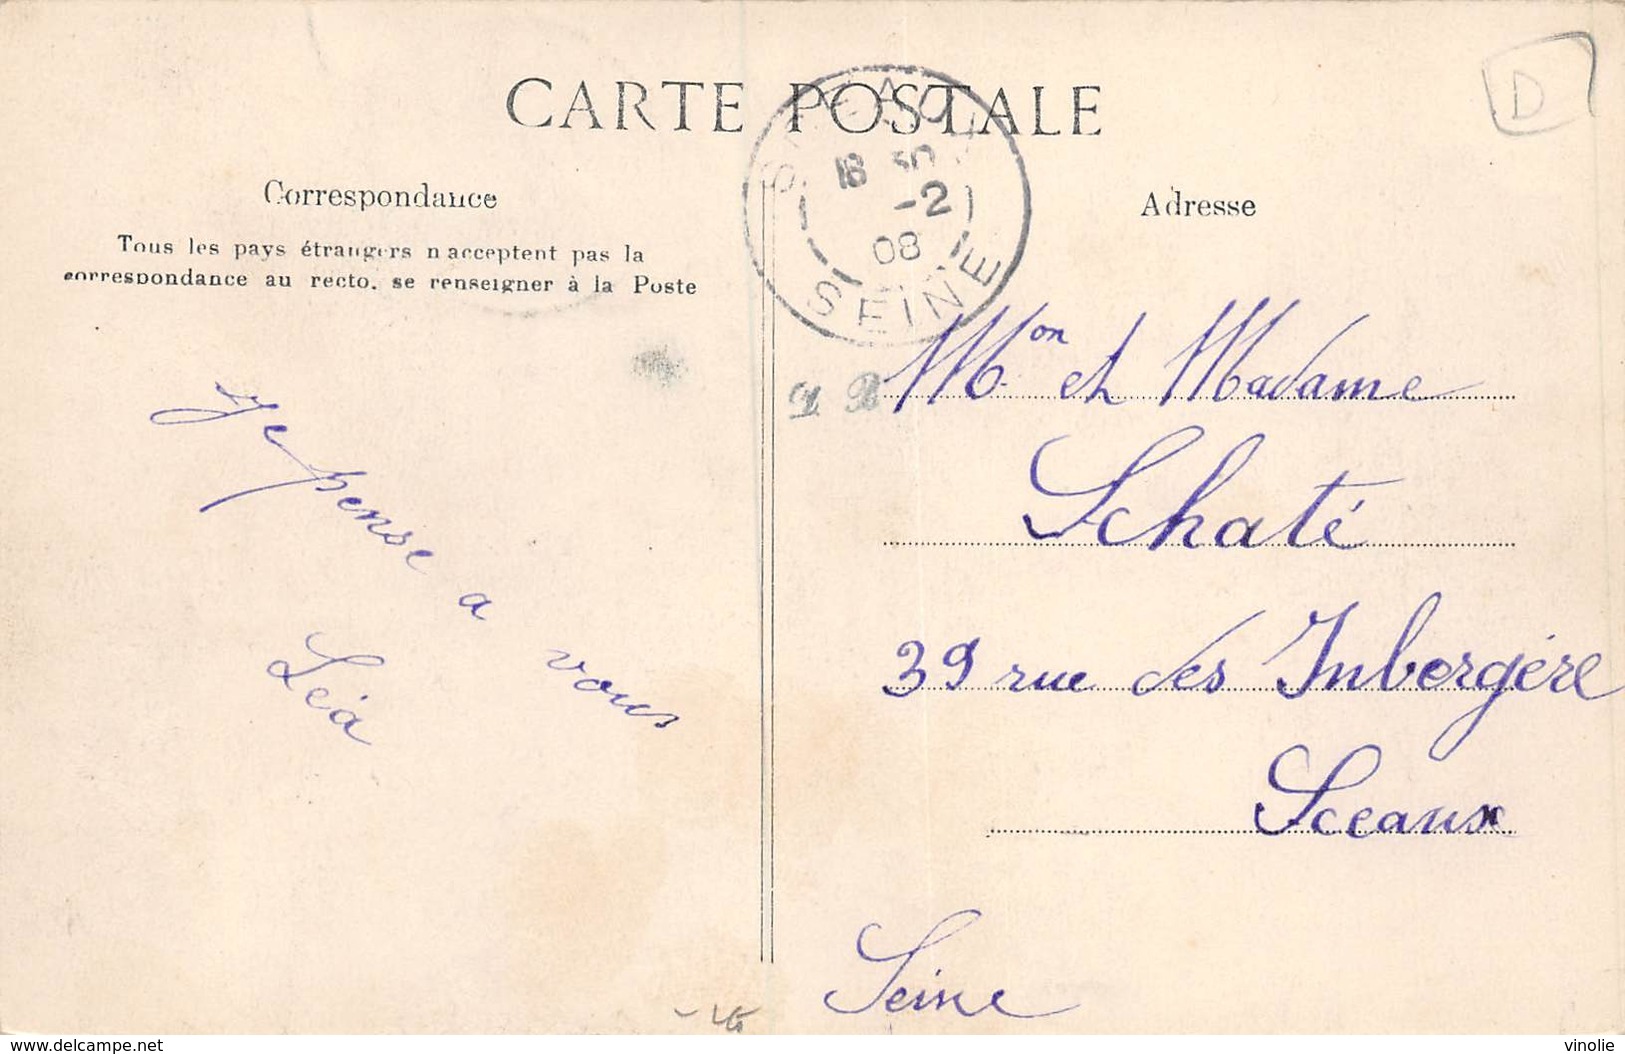 CARTE POSTALE
Correspondance
Tous les pays étrangers n'acceptent pas la
correspondance au recto, se renseigner à la Poste
Je pense a vous
Léa
SCEAUX
18 30
-2
08
SEINE
D
Adresse
Mon et Madame
Schaté
39 rue des Inbergère
Sceaux
Seine
https://www.delcampe.net
vinolie